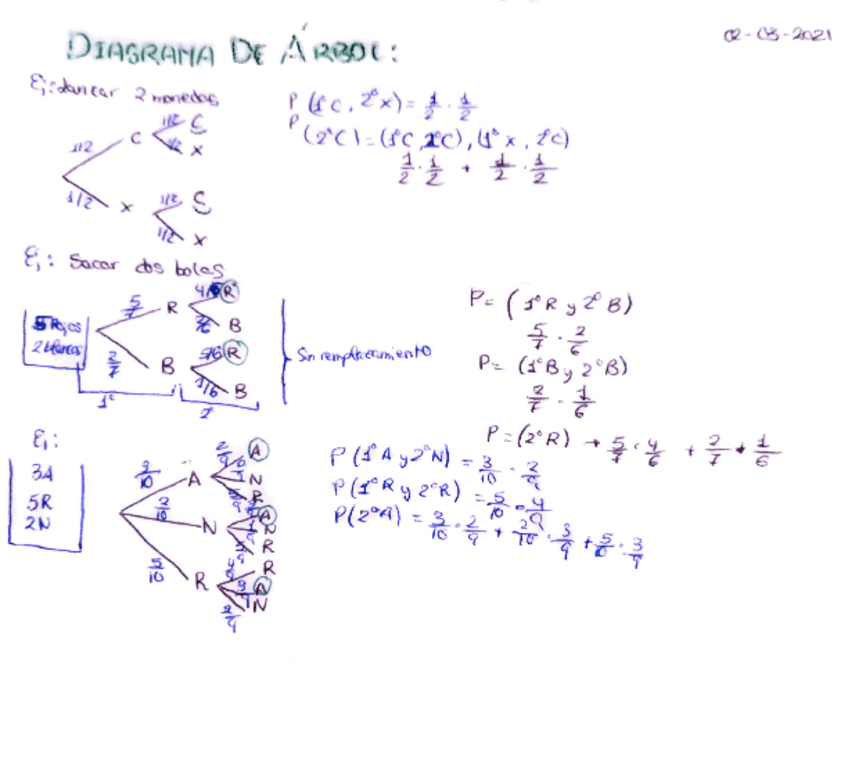 02-03-2021
DIAGRAMA DE ÁRBOL:
Ej: lanzar 2 monedas
1/2 C 1/2 C
1/2 X
1/2 X 1/2 C
1/2 X
P (1ºC, 2ºX) = 1/2 · 1/2
P (2ºC) = (1ºC, 2ºC), (1ºX, 2ºC)
1/2 · 1/2 + 1/2 · 1/2
Ej: Sacar dos bolas
5 Rojas
2 blancas
5/7 R 4/6 R
B
2/7 B 5/6 R
1/6 B
1º 2º
Sin remplazamiento
P = (1º R y 2º B)
5/7 · 2/6
P = (1º B y 2º B)
2/7 · 1/6
P = (2º R) → 5/7 · 4/6 + 2/7 + 1/6
Ej:
3A
5R
2N
3/10 A 2/9 A
N
R
2/10 N A
N
R
5/10 R 4/9 R
3/9 A
2/9 N
P (1º A y 2º N) = 3/10 · 2/9
P (1º R y 2º R) = 5/10 · 4/9
P (2º A) = 3/10 · 2/9 + 2/10 · 3/9 + 5/10 · 3/9